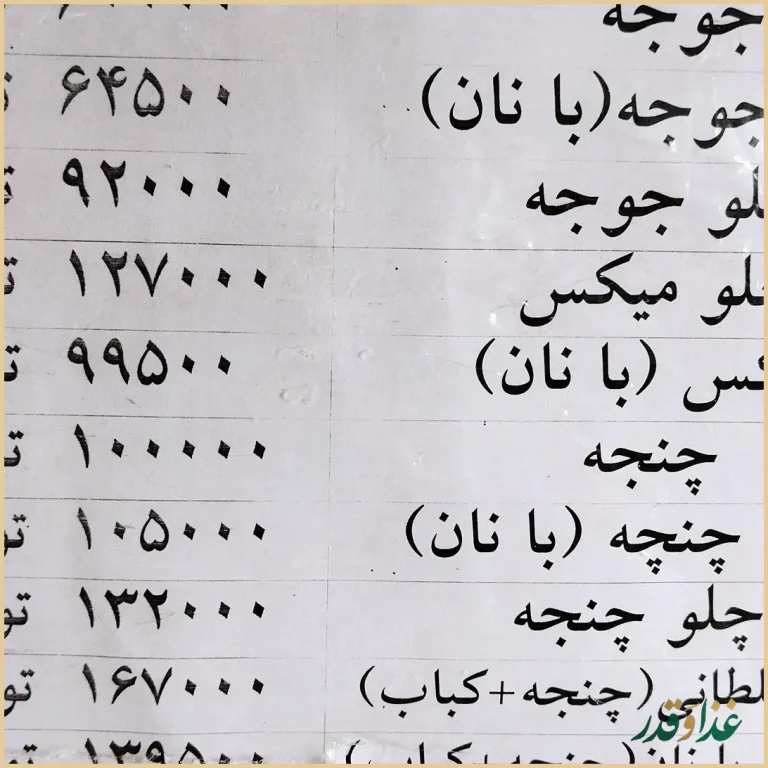 جوجه
جوجه(با نان) ۶۴۵۰۰
جوجه ۹۲۰۰۰
میکس ۱۲۷۰۰۰
(با نان) ۹۹۵۰۰
چنجه ۱۰۰۰۰۰
چنچه (با نان) ۱۰۵۰۰۰
چلو چنجه ۱۳۲۰۰۰
(چنجه+کباب) ۱۶۷۰۰۰
غذا و قدر